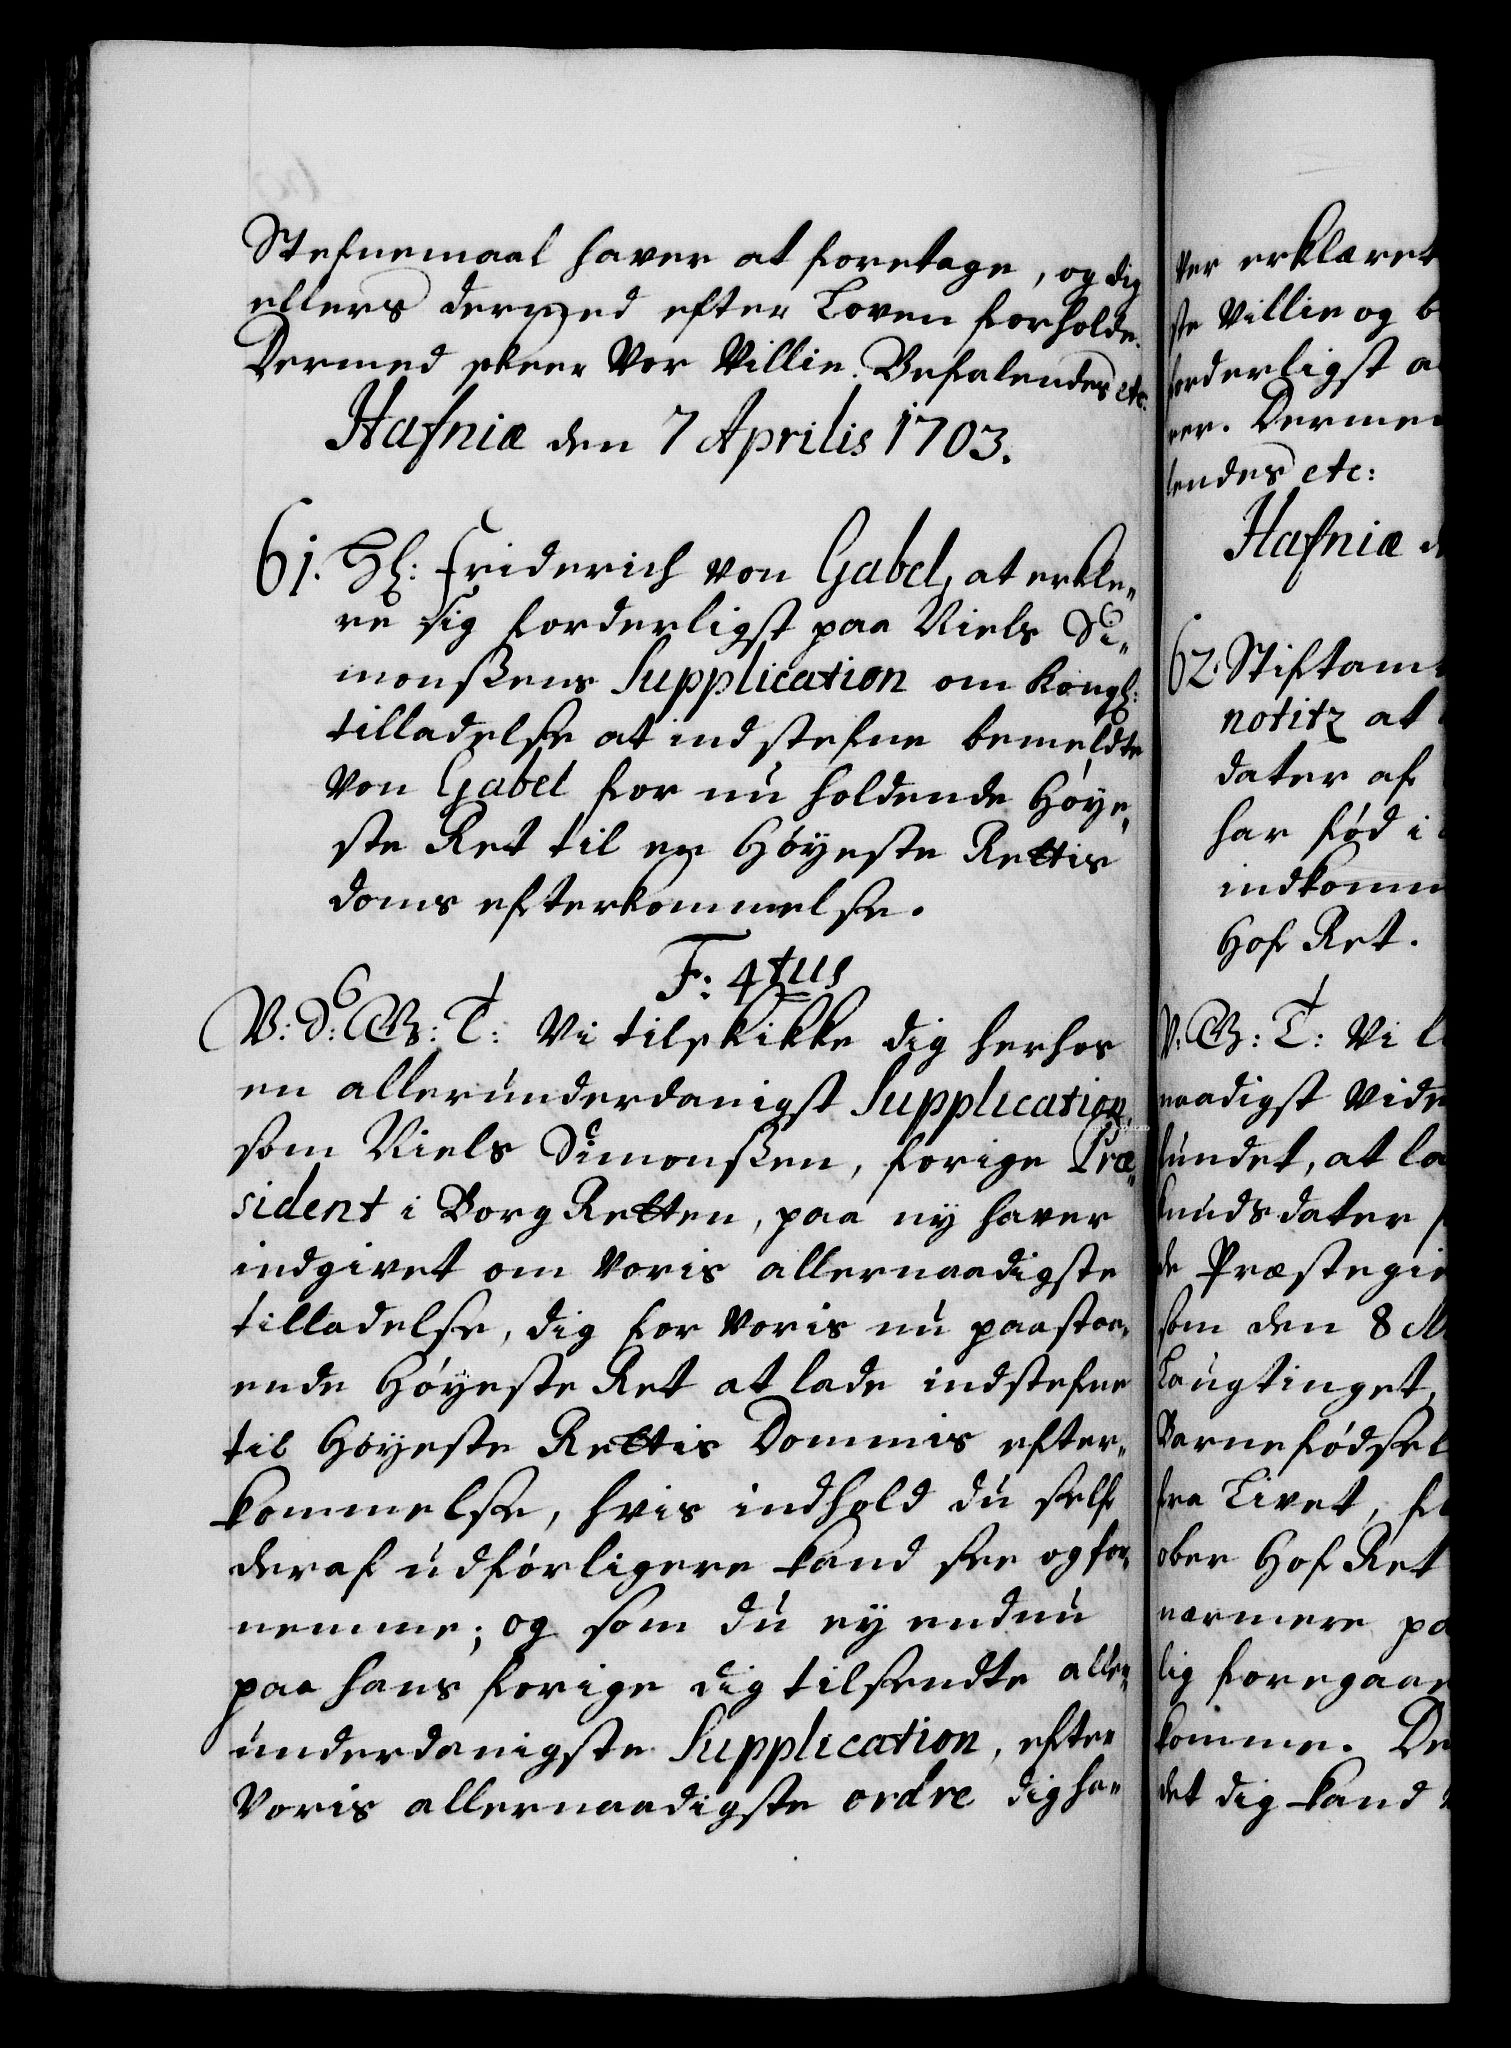 Stefnemaal haver at foretage, og dig
ellers dermed efter Loven forholde.
Dermed skeer Vor Villie. Befalendes etc:
Hafniæ den 7 Aprilis 1703.
61. Hl: Friderich von Gabel, at erkle-
re sig forderligst paa Niels Si-
monßens Supplication om kongl:
tilladelse at indstefne bemeldte
von Gabel for nu holdende Høye-
ste Ret til en Høyeste Rettis
doms efterkommelse.
F: 4tus
V: S: G: T: Vi tilskikke dig herhos
en allerunderdanigst Supplication
som Niels Simonßen, forige Præ-
sident i Borg Retten, paa ny haver
indgivet om Voris allernaadigste
tilladelse, dig for Voris nu paastaa-
ende Høyeste Ret at lade indstefne
til Høyeste Rettis Dommis efter-
kommelse, hvis indhold du self
deraf udførligere kand see og for-
nemme; og som du ey endnu
paa hans forige dig tilsendte aller-
underdanigste Supplication, efter
Voris allernaadigste ordre dig ha-
ver erklæret
ste Villie og b
forderligst a
rer. Dermed
lendes etc:
Hafniæ d
62. Stiftam
notitz at
dater af
har fød i
indkomm
Hof Ret.
V: G: T: Vi l
naadigst Vide
fundet, at la
Knudsdater
de Præstegie
som den 8 M
Laugtinget,
Barnefødsel
fra Livet, f
ober Hof Ret
nærmere pa
lig foregaa
komme. De
det dig kand